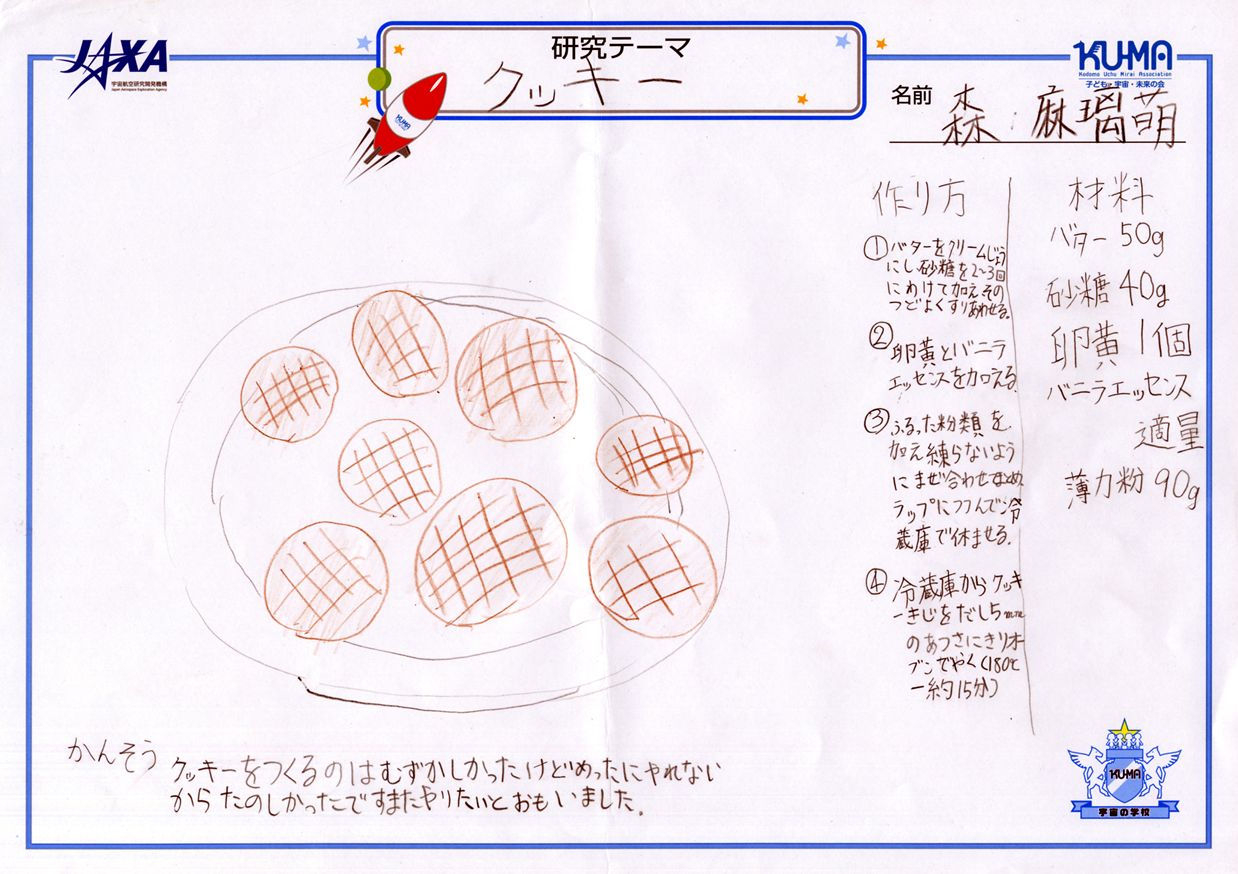 JAXA
宇宙航空研究開発機構
Japan Aerospace Exploration Agency
研究テーマ
クッキー
KUMA
KU-MA
Kodomo Uchu Mirai Association
子ども・宇宙・未来の会
名前 森 麻璃萌
作り方
①バターをクリームじょう
にし砂糖を2~3回
にわけて加えその
つどよくすりあわせる。
②卵黄とバニラ
エッセンスを加える。
③ふるった粉類を
加え練らないよう
にまぜ合わせまとめ
ラップにつつんで冷
蔵庫で休ませる。
④冷蔵庫からクッキ
ーきじをだし5mm
のあつさにきりオー
ブンでやく(180℃
ー約15分)
材料
バター 50g
砂糖 40g
卵黄 1個
バニラエッセンス
適量
薄力粉 90g
かんそう
クッキーをつくるのはむずかしかったけどめったにやれない
からたのしかったですまたやりたいとおもいました。
KUMA
宇宙の学校